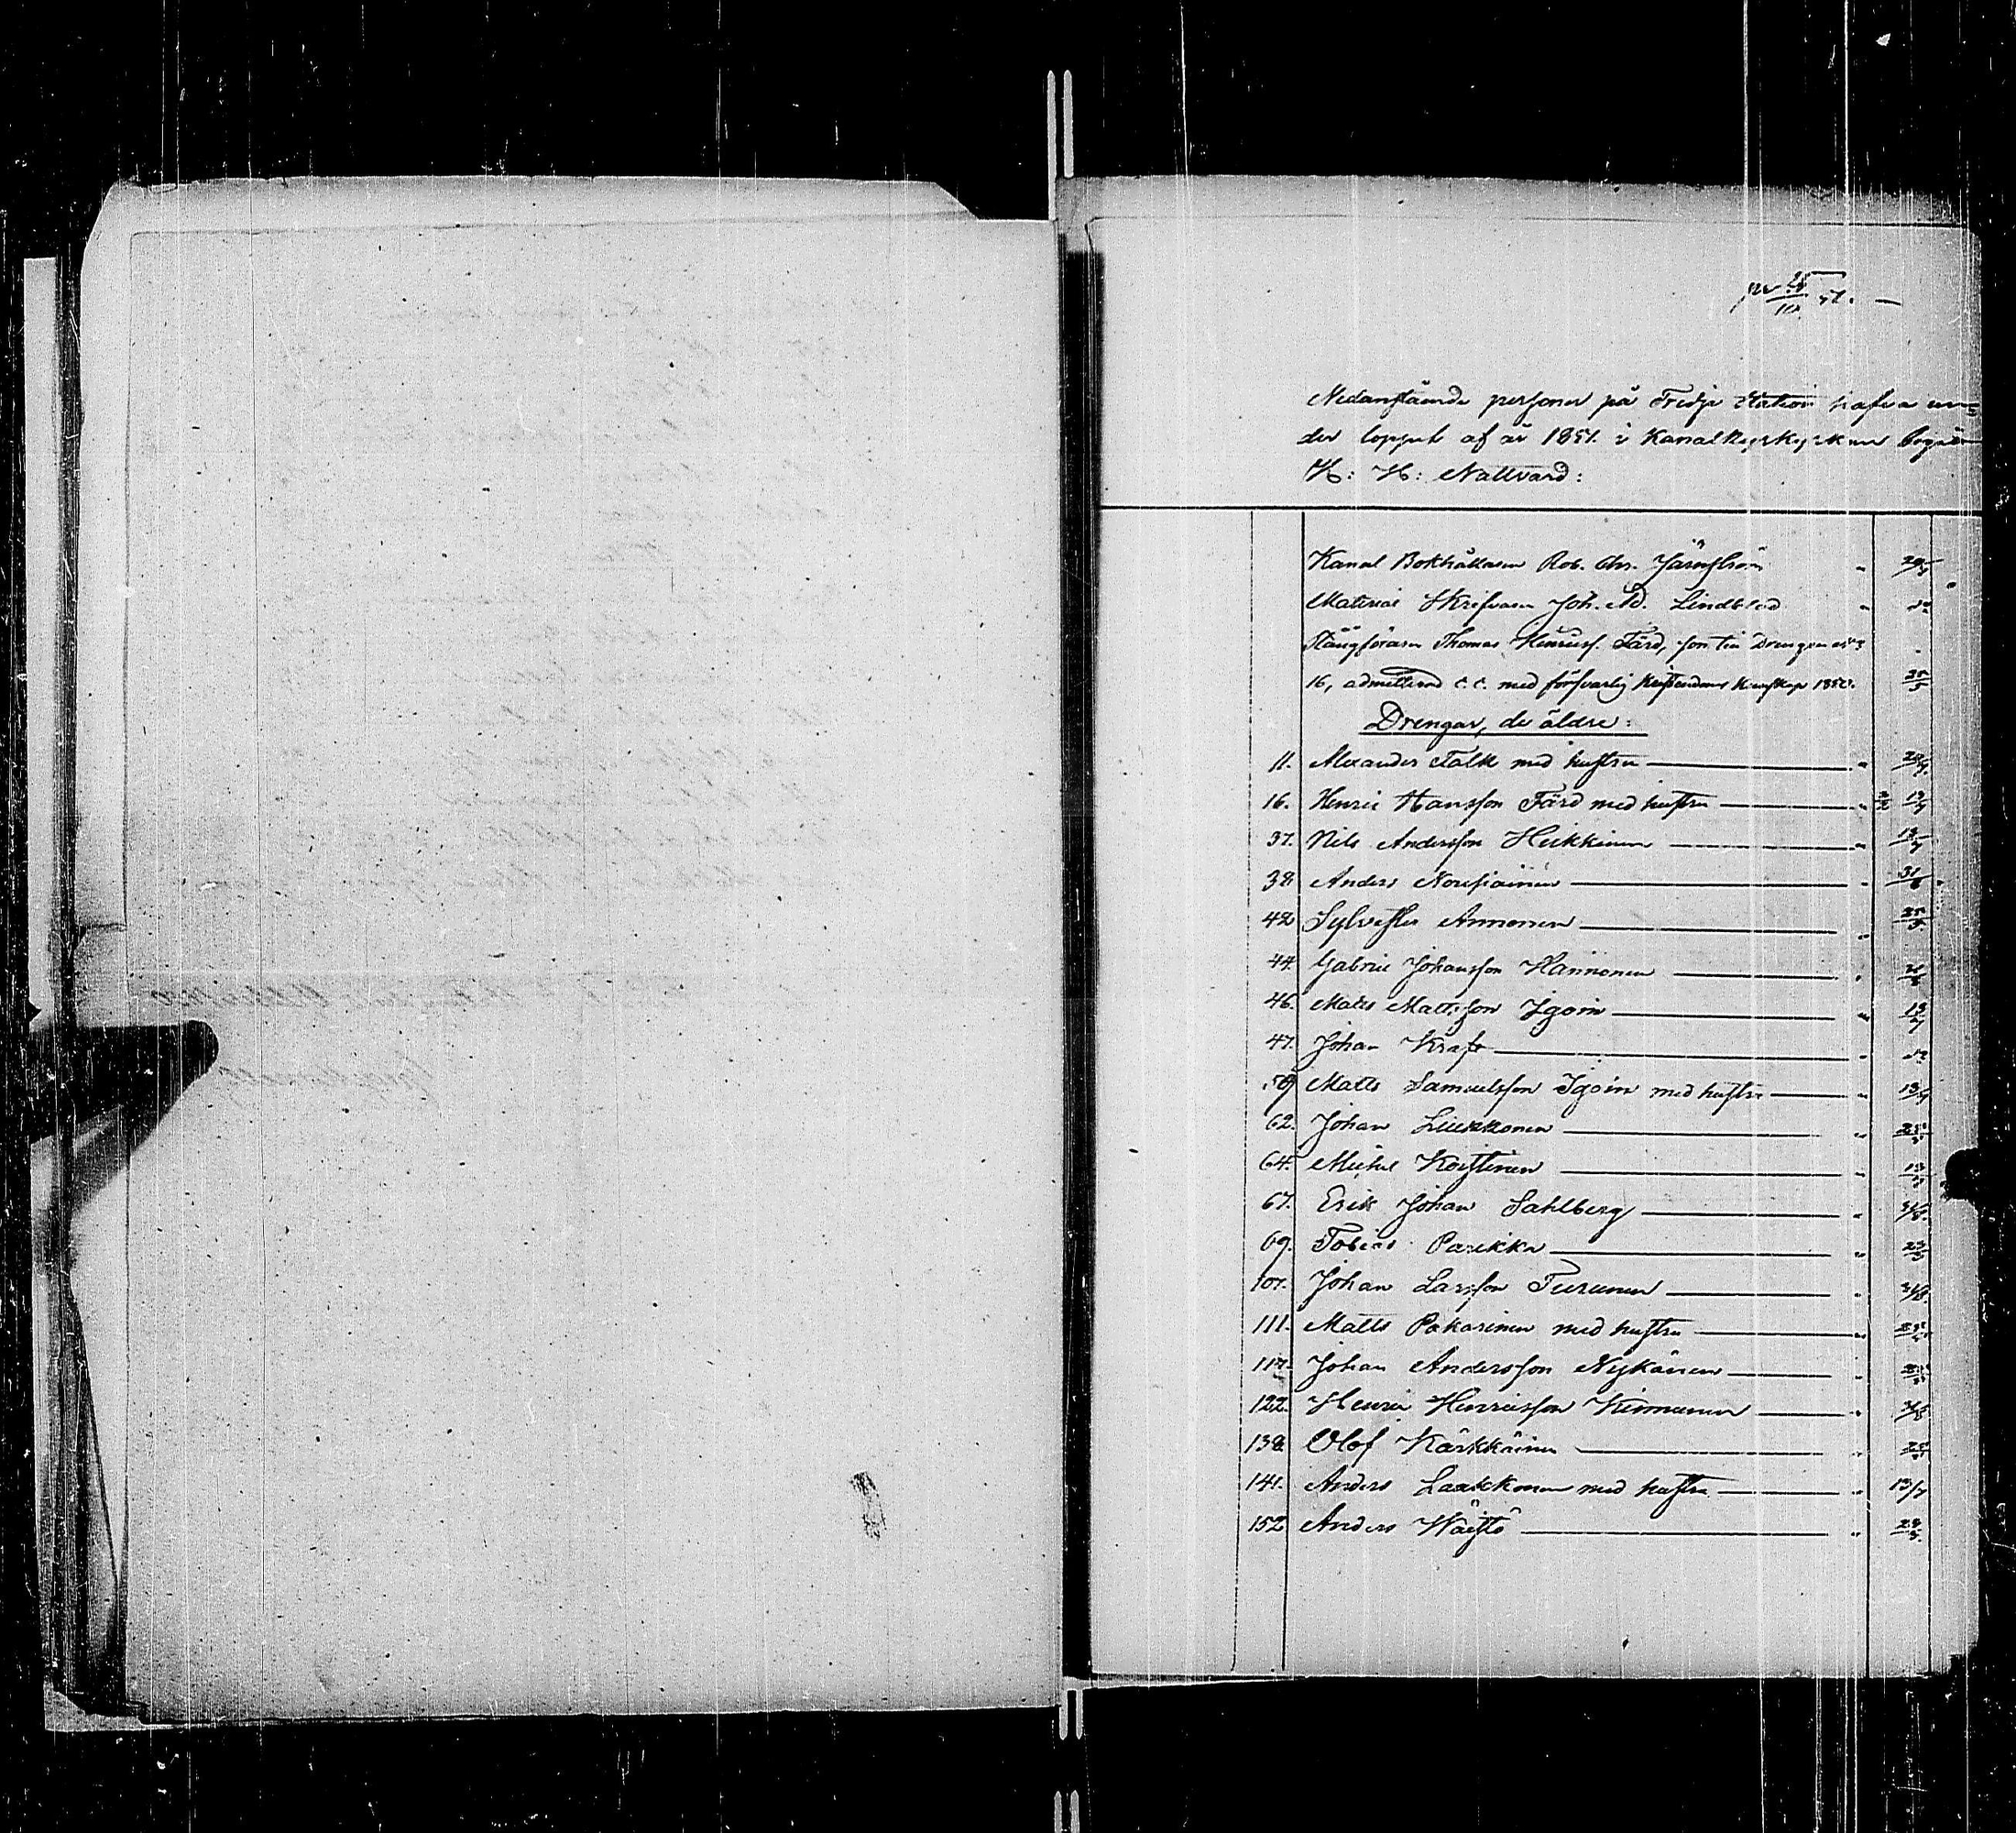 Nedanstående personer på Tredje Station hafva un=
der loppet af år 1851. i Kanalkyrkan begått
H: H: Nattvard:
Kanal Bokhållaren Rob. Chr. Järnström " 29/
Material Skrifvaren Joh. Ad. Lindblad "
Stångföraren Thomas Henricss. Färd, son till Drengen N:o
16, admitterad c.c. med försvarlig kunskap 1850. 25/5
Drengar, de äldre:
11. Alexander Falk med hustru "
16. Henric Hansson Färd med hustru " 13/7
37. Nils Andersson Heikkinen " 13/7
38 Anders Nousiainen " 31/8
42 Sylvester Annonen " 25/5
44. Gabriel Johansson Hannonen "
46. Matts Mattsson Igoin " 13/7
47. Johan Kraft "
59 Matts Samuelsson Igoin med hustru " 13/7
62. Johan Liukkonen " 25/5
64. Michel Koistinen "
67. Erik Johan Sahlberg " 31/8
69. Tobias Parikka " 25/5
107. Johan Larsson Turunen " 31/8.
111. Matts Pakarinen med hustru "
117. Johan Andersson Nykänen "
122. Henric Henricsson Kinnunen " 31/8
138. Olof Kärkkäinen "
141. Anders Laakkonen med hustru " 13/7
152 Anders Wäistö "